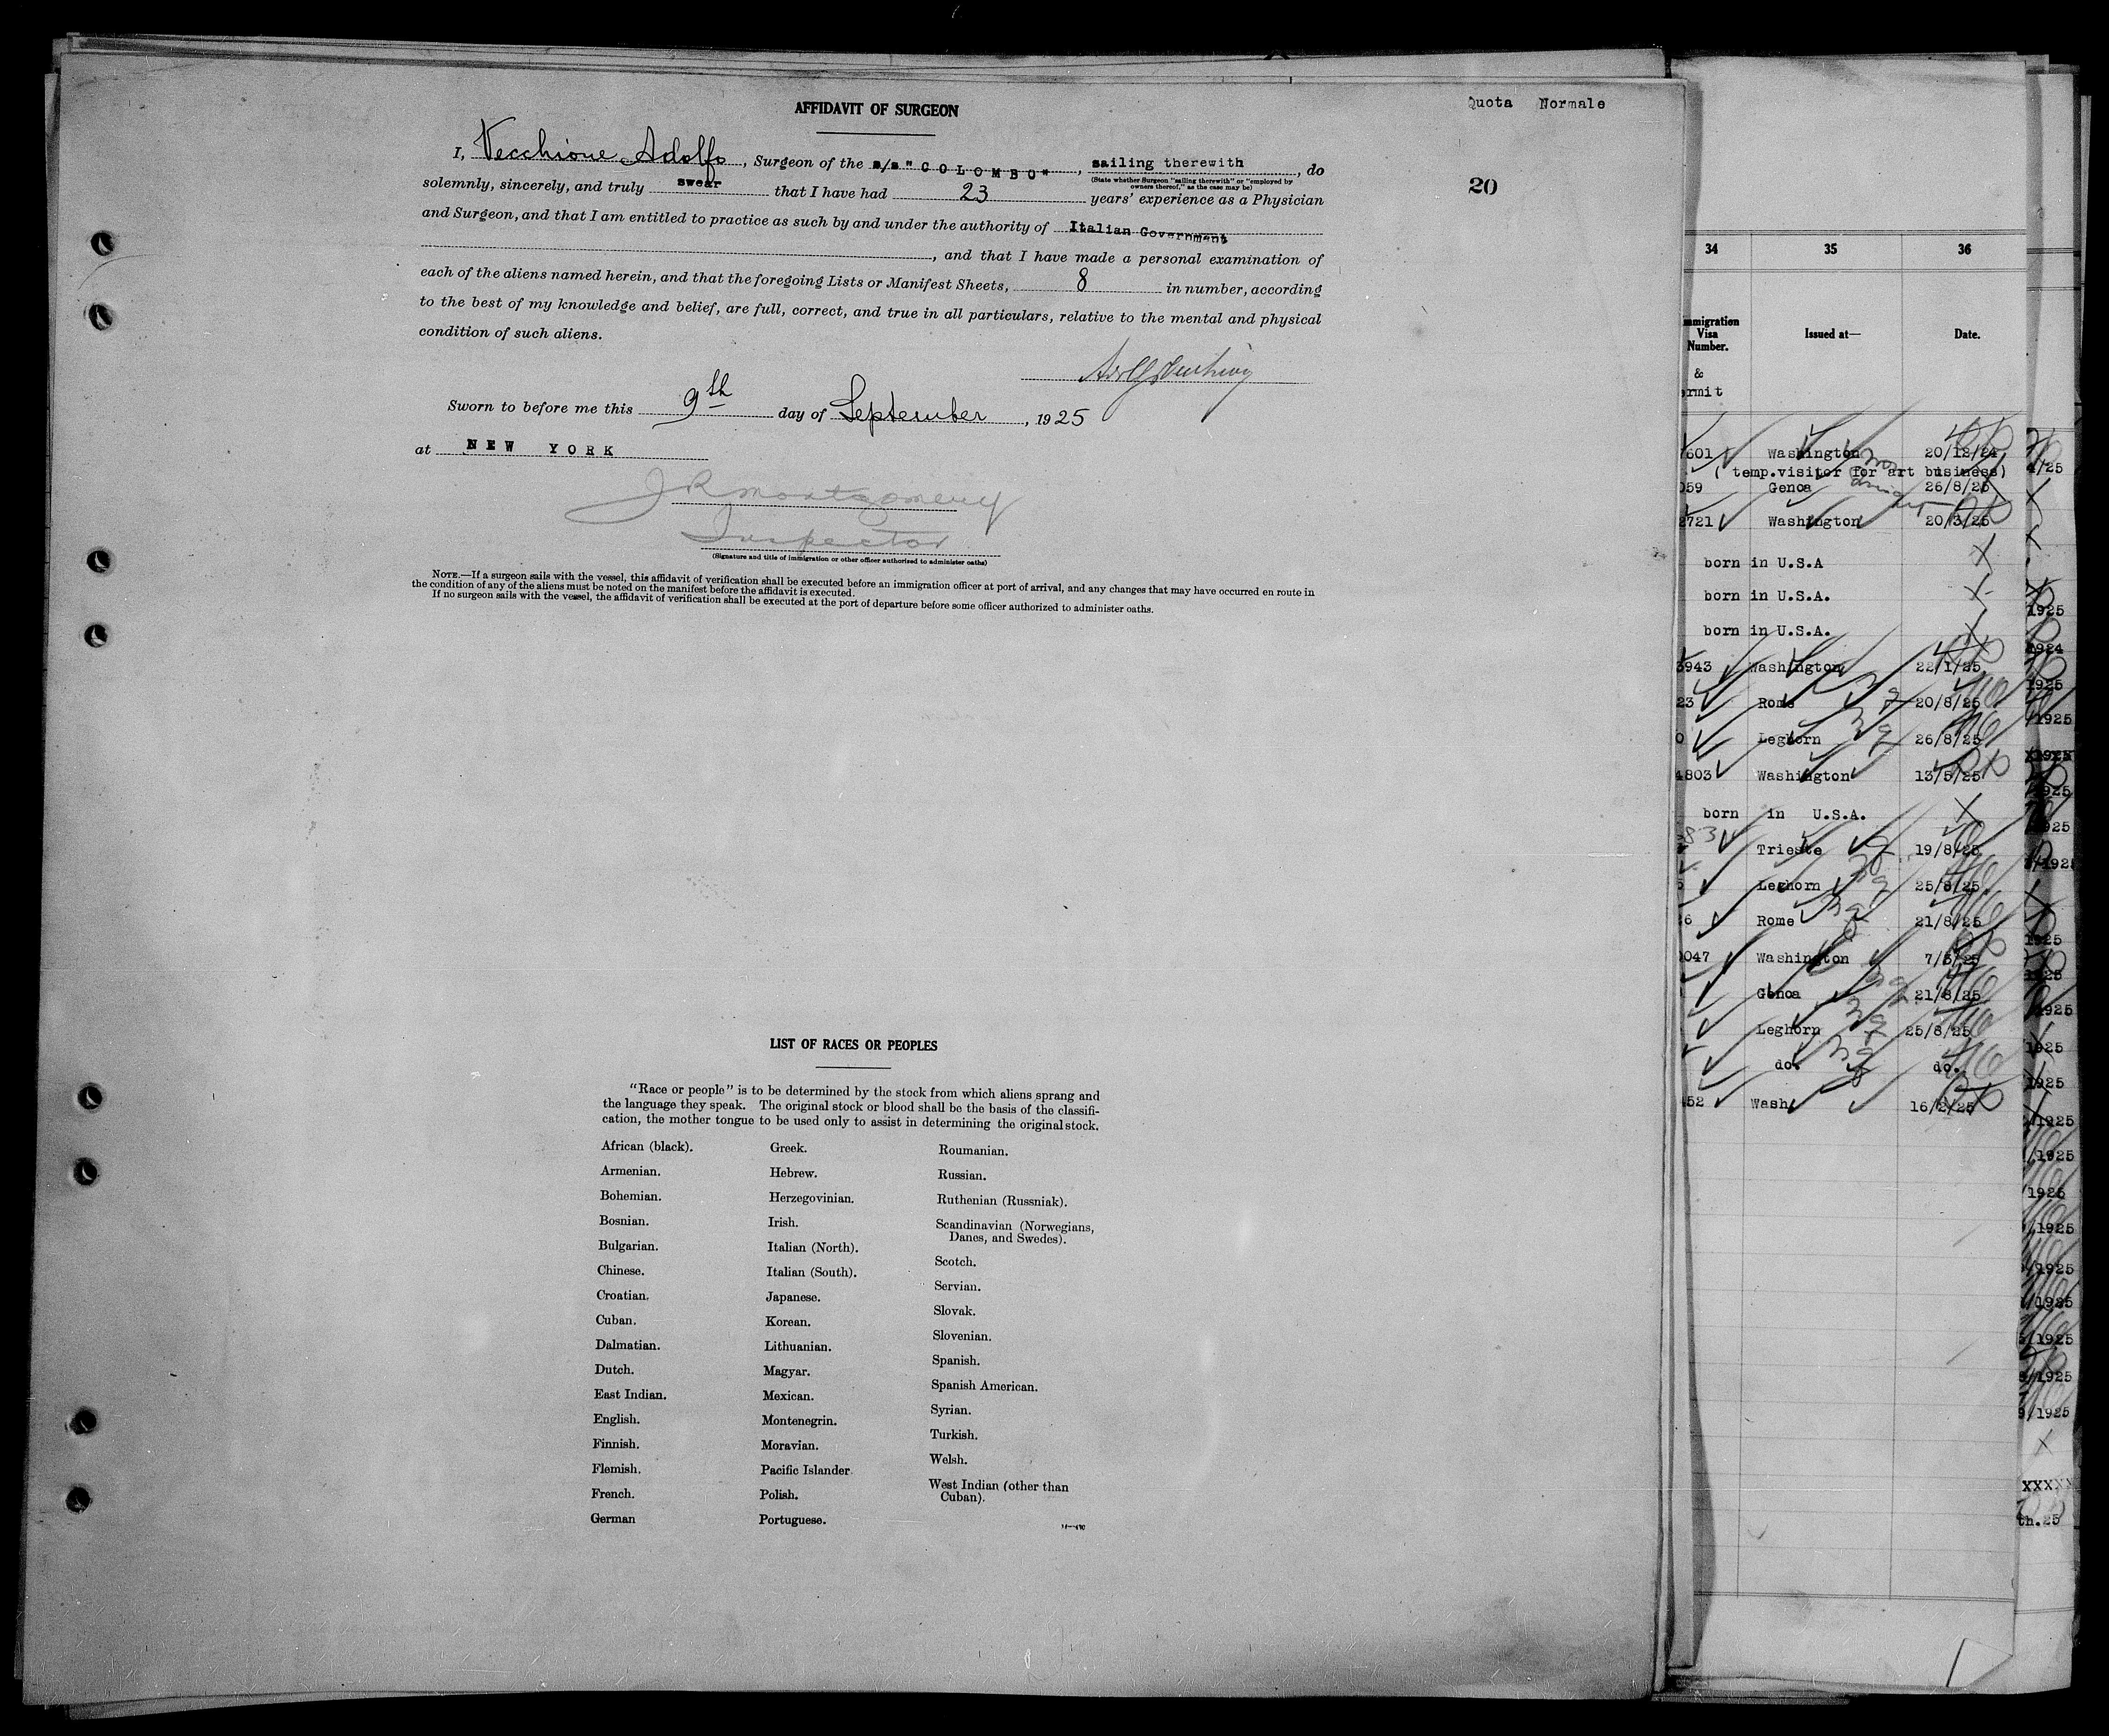 AFFIDAVIT OF SURGEON
Quota Normale
20
I, Vecchione Adolfo, Surgeon of the s/s "COLOMBO", sailing therewith, do
(State whether Surgeon "sailing therewith" or "employed by
owners thereof," as the case may be)
solemnly, sincerely, and truly swear that I have had 23 years' experience as a Physician
and Surgeon, and that I am entitled to practice as such by and under the authority of Italian Government
, and that I have made a personal examination of
each of the aliens named herein, and that the foregoing Lists or Manifest Sheets, 8 in number, according
to the best of my knowledge and belief, are full, correct, and true in all particulars, relative to the mental and physical
condition of such aliens.
Sworn to before me this 9th day of September, 1925
at NEW YORK
J R Montgomery
Inspector
(Signature and title of immigration or other officer authorized to administer oaths)
NOTE.—If a surgeon sails with the vessel, this affidavit of verification shall be executed before an immigration officer at port of arrival, and any changes that may have occurred en route in
the condition of any of the aliens must be noted on the manifest before the affidavit is executed.
If no surgeon sails with the vessel, the affidavit of verification shall be executed at the port of departure before some officer authorized to administer oaths.
LIST OF RACES OR PEOPLES
"Race or people" is to be determined by the stock from which aliens sprang and
the language they speak. The original stock or blood shall be the basis of the classifi-
cation, the mother tongue to be used only to assist in determining the original stock.
African (black).
Armenian.
Bohemian.
Bosnian.
Bulgarian.
Chinese.
Croatian.
Cuban.
Dalmatian.
Dutch.
East Indian.
English.
Finnish.
Flemish.
French.
German
Greek.
Hebrew.
Herzegovinian.
Irish.
Italian (North).
Italian (South).
Japanese.
Korean.
Lithuanian.
Magyar.
Mexican.
Montenegrin.
Moravian.
Pacific Islander.
Polish.
Portuguese.
Roumanian.
Russian.
Ruthenian (Russniak).
Scandinavian (Norwegians,
Danes, and Swedes).
Scotch.
Servian.
Slovak.
Slovenian.
Spanish.
Spanish American.
Syrian.
Turkish.
Welsh.
West Indian (other than
Cuban).
34 35 36
mmigration
Visa
Number.
Issued at—
Date.
&
ermit
7601 Washington 20/12/24
( temp.visitor for art business)
059 Genoa 26/8/25
2721 Washington 20/3/25
born in U.S.A
born in U.S.A.
born in U.S.A.
3943 Washington 22/1/25
23 Rome 20/8/25
0 Leghorn 26/8/25
4803 Washington 13/5/25
born in U.S.A.
83 Trieste 19/8/25
5 Leghorn 25/8/25
26 Rome 21/8/25
047 Washington 7/5/25
Genoa 21/8/25
Leghorn 25/8/25
do. do.
452 Wash. 16/2/25
4/25
1925
1924
1925
/1925
1925
1925
1925
/1925
1925
1925
1925
1925
1925
/1925
/1925
1925
/1925
/1925
/1925
/1925
/1925
9/1925
XXXXX
th.25